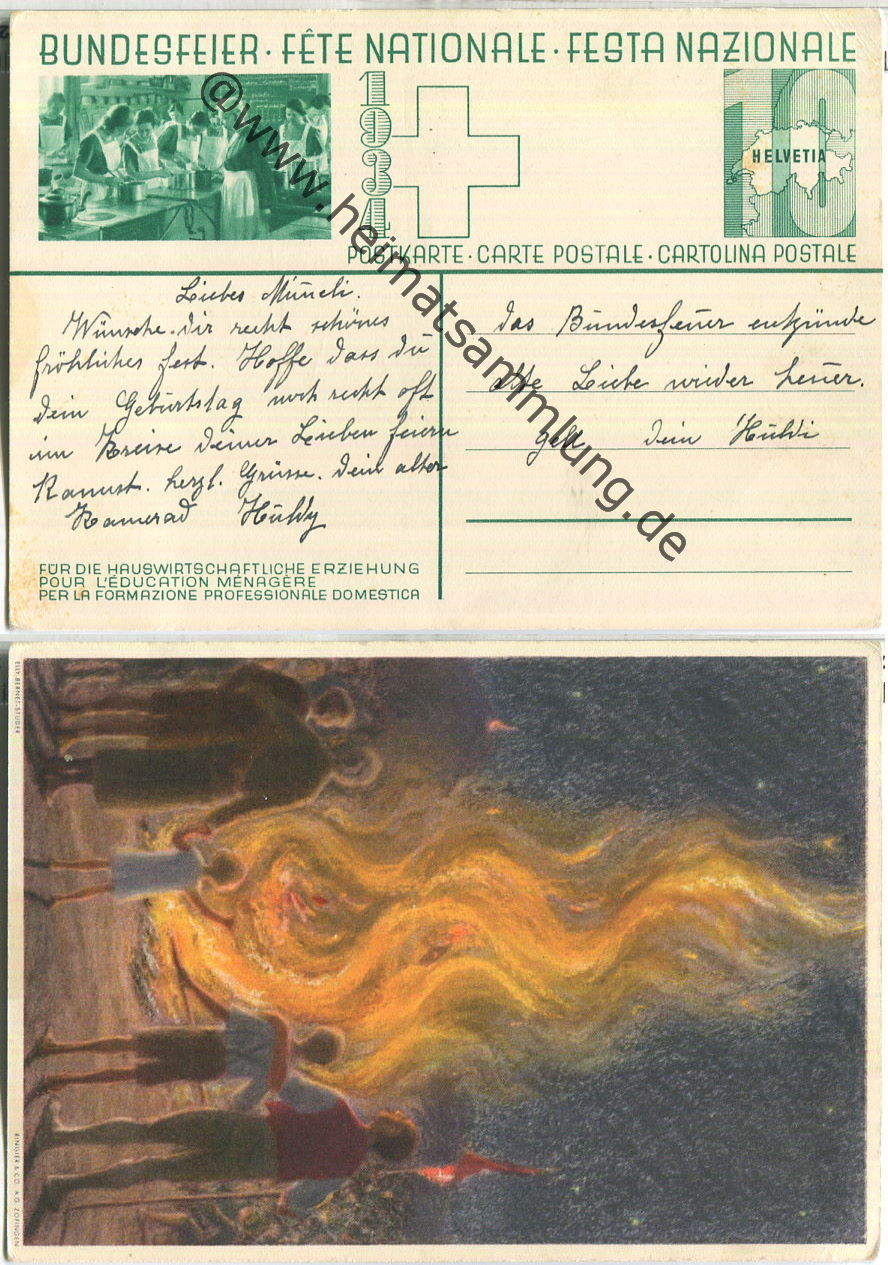 BUNDESFEIER · FÊTE NATIONALE · FESTA NAZIONALE
1934
10
HELVETIA
POSTKARTE · CARTE POSTALE · CARTOLINA POSTALE
Liebes Müneli.
Wünsche dir recht schönes
fröhliches fest. Hoffe dass du
dein Geburtstag noch recht oft
im Kreise deiner Lieben feiern
Kannst. herzl. Grüsse. dein alter
Kamerad Huldy
das Bundesfeuer entzünde
alte Liebe wieder heuer.
Gell dein Huldi
FÜR DIE HAUSWIRTSCHAFTLICHE ERZIEHUNG
POUR L'ÉDUCATION MÉNAGÈRE
PER LA FORMAZIONE PROFESSIONALE DOMESTICA
@www.heimatsammlung.de
ELLY BERNET-STUDER
RINGIER & CO. A.G. ZOFINGEN